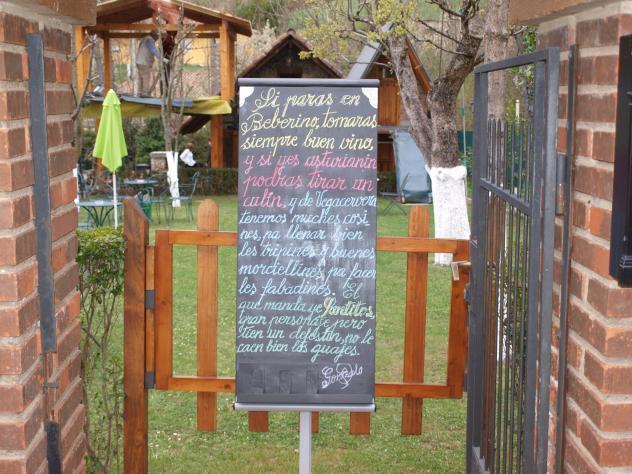 Si paras en
Beberino, tomaras
siempre buen vino,
y si yes asturianin
podras tirar un
culin, y de Vegacervera
tenemos muches cosi
nes, pa llenar bien
les tripines y buenes
morciellines, pa facer
les fabadines. El
que manda ye Santitos
gran personaje pero
tien un defestán, no le
caen bien los guajes.
Gonzalo